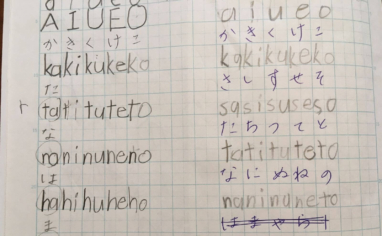 AIUEO
かきくけこ
kakikukeko
た
tatituteto
な
naninuneno
は
hahihuheho
ま
aiueo
かきくけこ
kakikukeko
さしすせそ
sasisuseso
たちつてと
tatituteto
なにぬねの